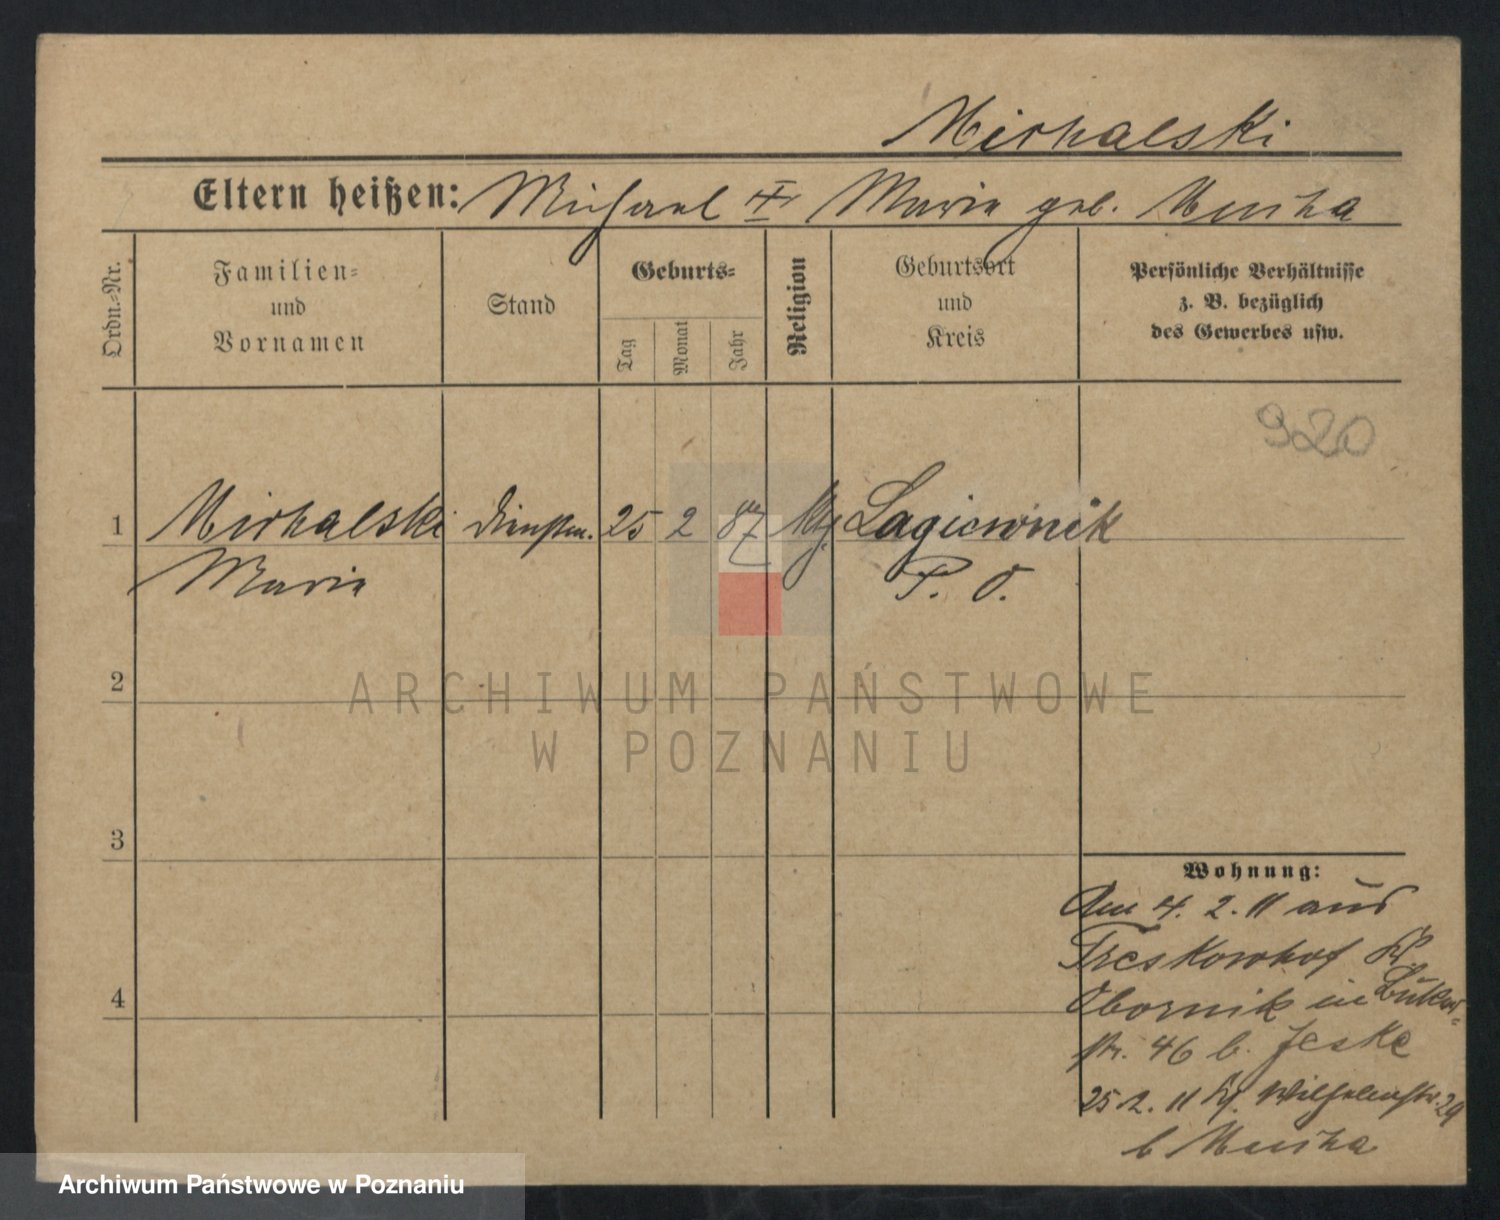 Michalski
Eltern heißen: Michael Maria geb. Mucha
Ordn.-Nr.
Familien-
und
Vornamen
Stand
Geburts-
Tag
Monat
Jahr
Religion
Geburtsort
und
Kreis
Persönliche Verhältnisse
z. B. bezüglich
des Gewerbes usw.
920
1 Michalski Dienstm. 25 2 87 Lagiewnik
Maria P. O.
2
3
4
Wohnung:
Am 4. 2. 11 aus
Treskowhof Kr.
Obornik in
str. 46 b. Jeske
25 2. 11 Wilhelmstr. 29
b Mucha
ARCHIWUM PAŃSTWOWE
W POZNANIU
Archiwum Państwowe w Poznaniu